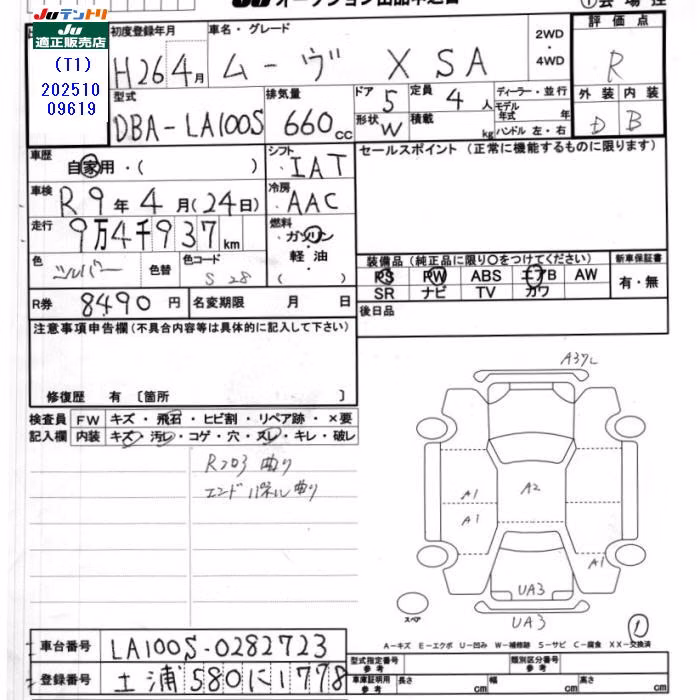 Juテントリ
Ju オークション出品申込書
① 会場控
JU
適正販売店
(T1)
202510
09619
初度登録年月
H26 4月
車名・グレード
ムーヴ X SA
2WD
・
4WD
評価点
R
外装 内装
D B
型式
DBA-LA100S
排気量
660cc
ドア 5
形状 W
定員 4人
積載 kg
ディーラー・並行
モデル年式 年
ハンドル 左・右
車歴
自家用・( )
シフト
IAT
セールスポイント (正常に機能するものに限ります)
車検
R9年4月(24日)
冷房
AAC
走行
9万4千937km
燃料
ガソリン
軽・油
( )
色
シルバー
色替
色コード
S28
装備品 (純正品に限り○をつけてください)
PS PW ABS エアB AW
SR ナビ TV カワ
新車保証書
有・無
R券 8490円
名変期限 月 日
後日品
注意事項申告欄(不具合内容等は具体的に記入して下さい)
修復歴 有 〔箇所 〕
検査員 FW キズ・飛石・ヒビ割・リペア跡・×要
記入欄 内装 キズ・汚レ・コゲ・穴・スレ・キレ・破レ
Rフロア曲り
エンドパネル曲り
A37L
A1
A2
A1
A1
UA3
UA3
スペア
①
A-キズ E-エクボ U-凹み W-補修跡 S-サビ C-腐食 XX-交換済
車台番号 LA100S-0282723
登録番号 土浦580に1778
型式指定番号
参考
類別区分番号
参考
車庫証明用
参考
長さ cm
幅 cm
高さ cm